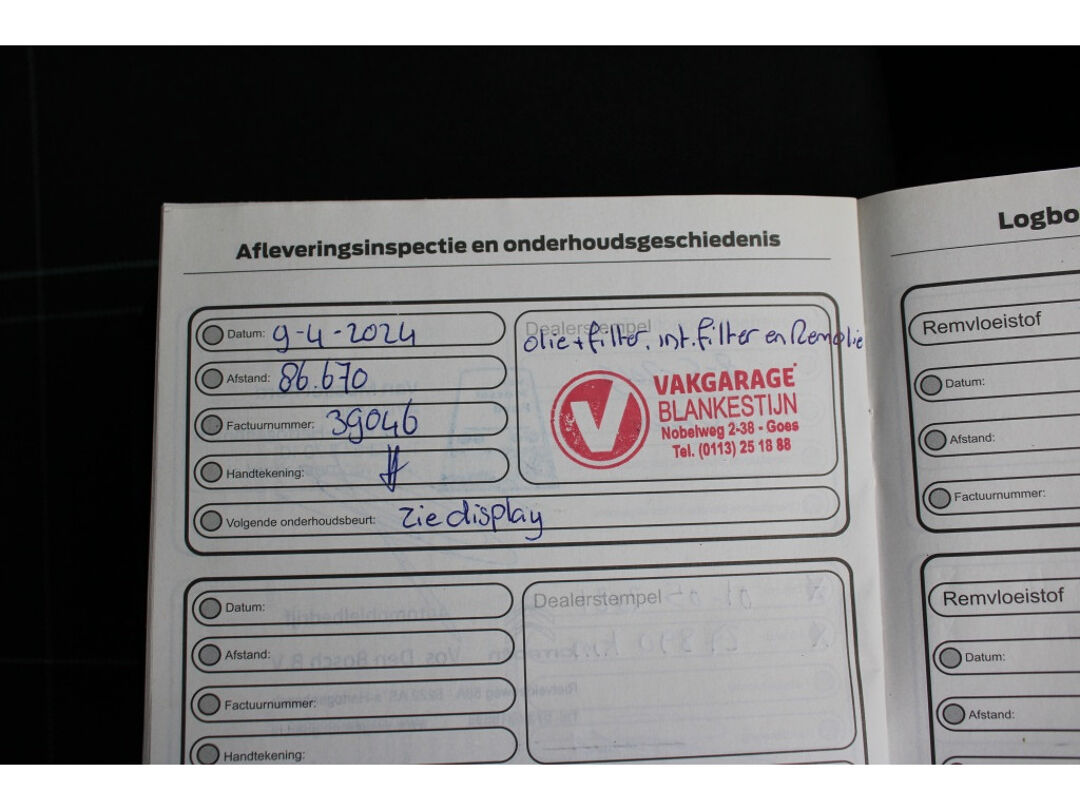 Afleveringsinspectie en onderhoudsgeschiedenis
Datum: 9-4-2024
Afstand: 86.670
Factuurnummer: 39046
Handtekening:
Volgende onderhoudsbeurt: Zie display
Dealerstempel
olie + filter, int. filter en Remolie
VAKGARAGE
BLANKESTIJN
Nobelweg 2-38 - Goes
Tel. (0113) 25 18 88
Datum:
Afstand:
Factuurnummer:
Handtekening:
Dealerstempel
Logbo
Remvloeistof
Datum:
Afstand:
Factuurnummer:
Remvloeistof
Datum:
Afstand: